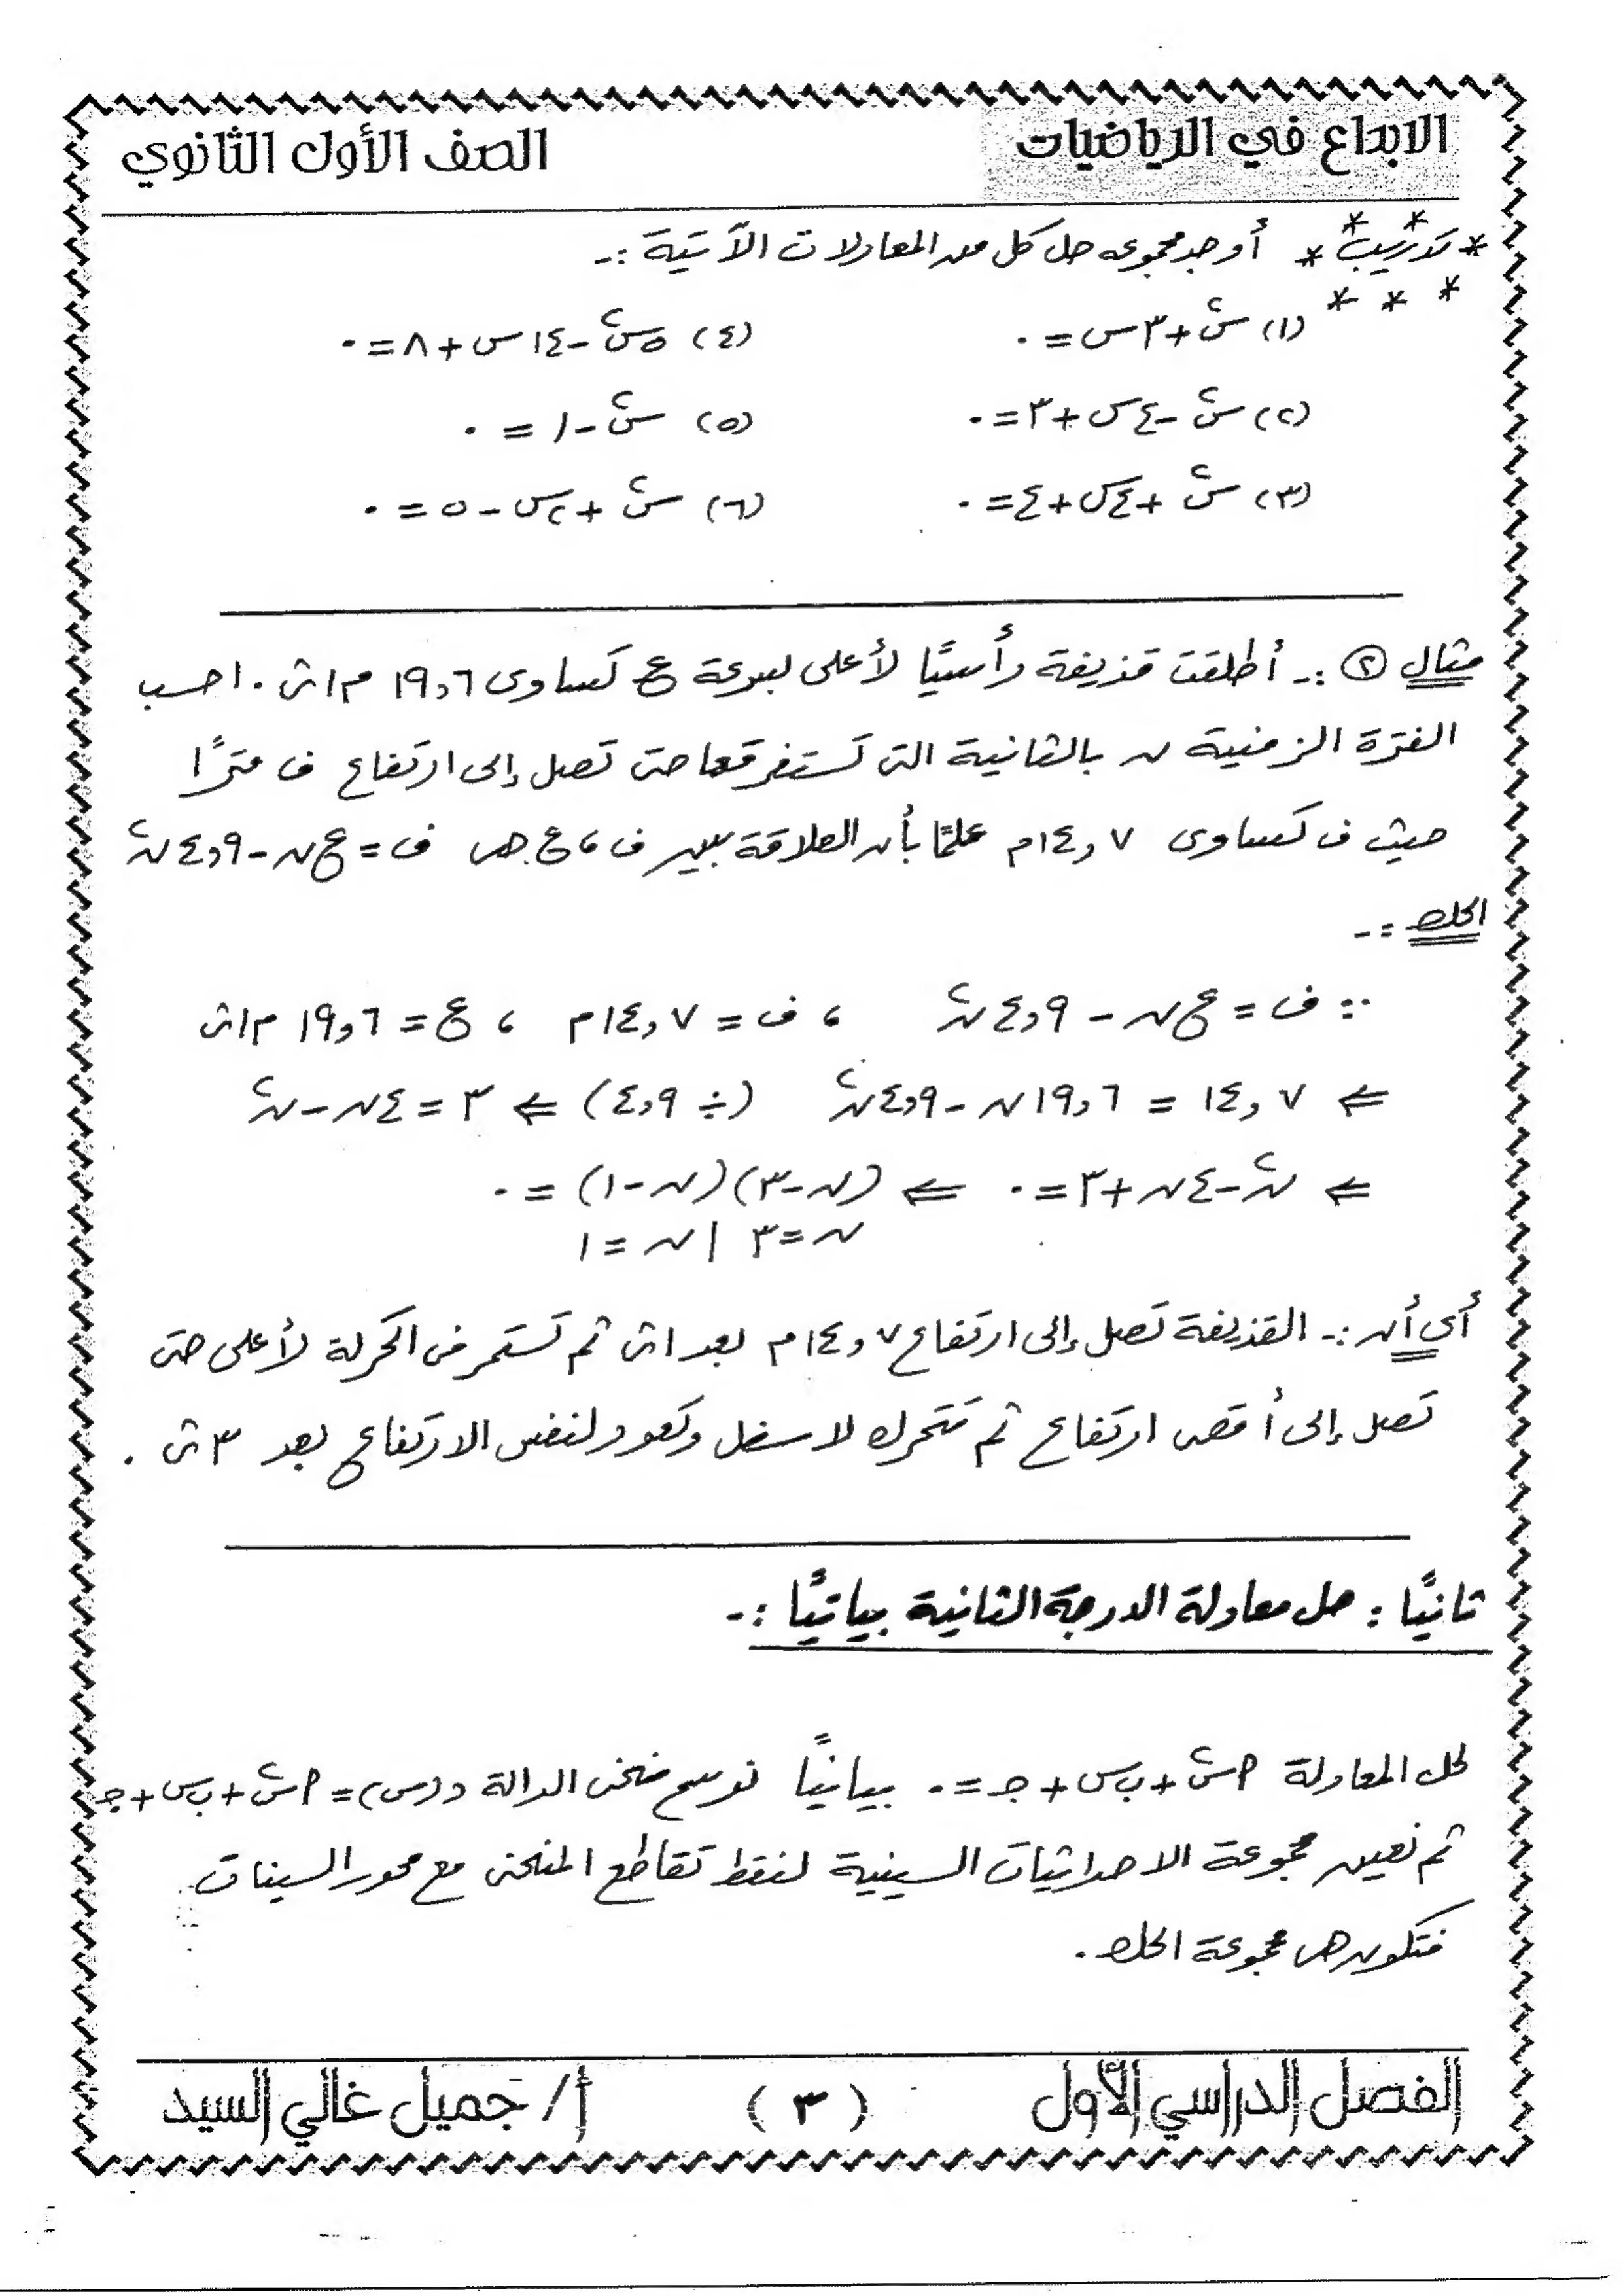 الابداع في الرياضيات
الصف الأول الثانوي
* تدريب * أوجد مجموعة حل كل من المعادلات الآتية :-
(١) س٢ + ٣س = ٠
(٤) ٥س٢ - ١٤س + ٨ = ٠
(٢) س٢ - ٤س + ٣ = ٠
(٥) س٢ - ١ = ٠
(٣) س٢ + ٤س + ٤ = ٠
(٦) س٢ + ٢س - ٥ = ٠
مثال ② :- أطلقت قذيفة رأسيًا لأعلى بسرعة ع تساوى ١٩,٦ م/ث . احسب
الفترة الزمنية ن بالثانية التى تستغرقها حتى تصل إلى ارتفاع ف مترًا
حيث ف تساوى ١٤,٧م علمًا بأن العلاقة بين ف ، ع هى ف = ع ن - ٤,٩ ن٢
الحل :-
∵ ف = ع ن - ٤,٩ ن٢ ، ف = ١٤,٧م ، ع = ١٩,٦ م/ث
⇐ ١٤,٧ = ١٩,٦ ن - ٤,٩ ن٢ (÷ ٤,٩) ⇐ ٣ = ٤ن - ن٢
⇐ ن٢ - ٤ن + ٣ = ٠ ⇐ (ن - ٣)(ن - ١) = ٠
ن = ٣ | ن = ١
أى أن :- القذيفة تصل إلى ارتفاع ١٤,٧م بعد ١ث ثم تستمر فى الحركة لأعلى حتى
تصل إلى أقصى ارتفاع ثم تتحرك لاسفل وتعود لنفس الارتفاع بعد ٣ث .
ثانيًا : حل معادلة الدرجة الثانية بيانيًا :-
لحل المعادلة ٢س٢ + ب س + جـ = ٠ بيانيًا نرسم منحنى الدالة د(س) = ٢س٢ + ب س + جـ
ثم نعين مجموعة الاحداثيات السينية لنقط تقاطع المنحنى مع محور السينات
فتكون هى مجموعة الحل .
الفصل الدراسي الأول
( ٣ )
أ/ جميل غالي السيد